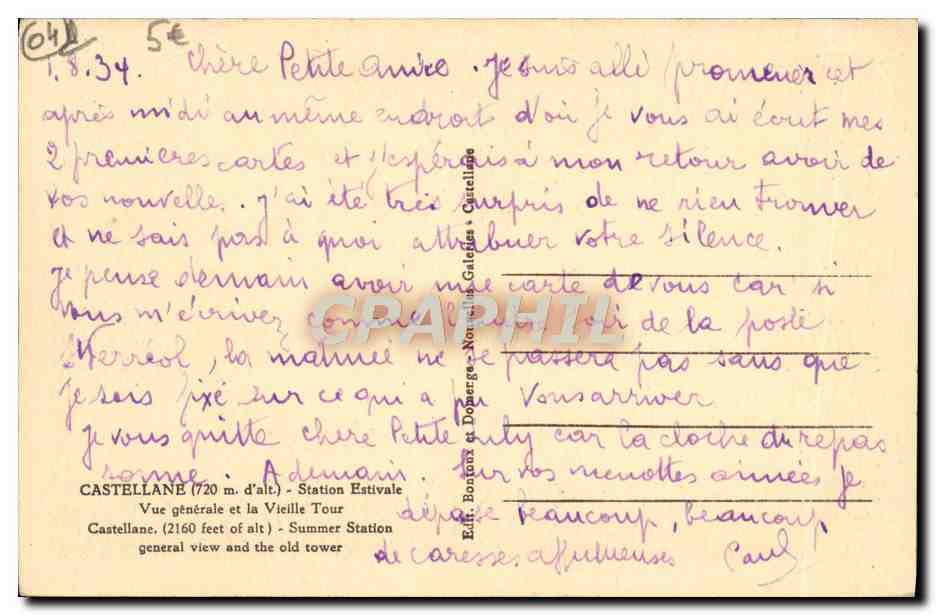 04
5€
1.8.34. Chère Petite Amie. Je suis allé promener cet
après midi au même endroit d'où je vous ai écrit mes
2 premieres cartes et j'espérais à mon retour avoir de
vos nouvelles. J'ai été très surpris de ne rien trouver
et ne sais pas à quoi attribuer votre silence.
Je pense demain avoir une carte de vous car si
vous m'écrivez comme soir de la poste
St Ferréol, la matinée ne se passera pas sans que
je sois fixé sur ce qui a pu vous arriver
Je vous quitte chère Petite Luly car la cloche du repas
sonne. A demain. Sur vos menottes aimées je
dépose beaucoup, beaucoup,
de caresses affectueuses Paul
CASTELLANE (720 m. d'alt.) - Station Estivale
Vue générale et la Vieille Tour
Castellane. (2160 feet of alt) - Summer Station
general view and the old tower
Edit. Bontoux et Domerge - Nouvelles Galeries - Castellane
CPARPHIL